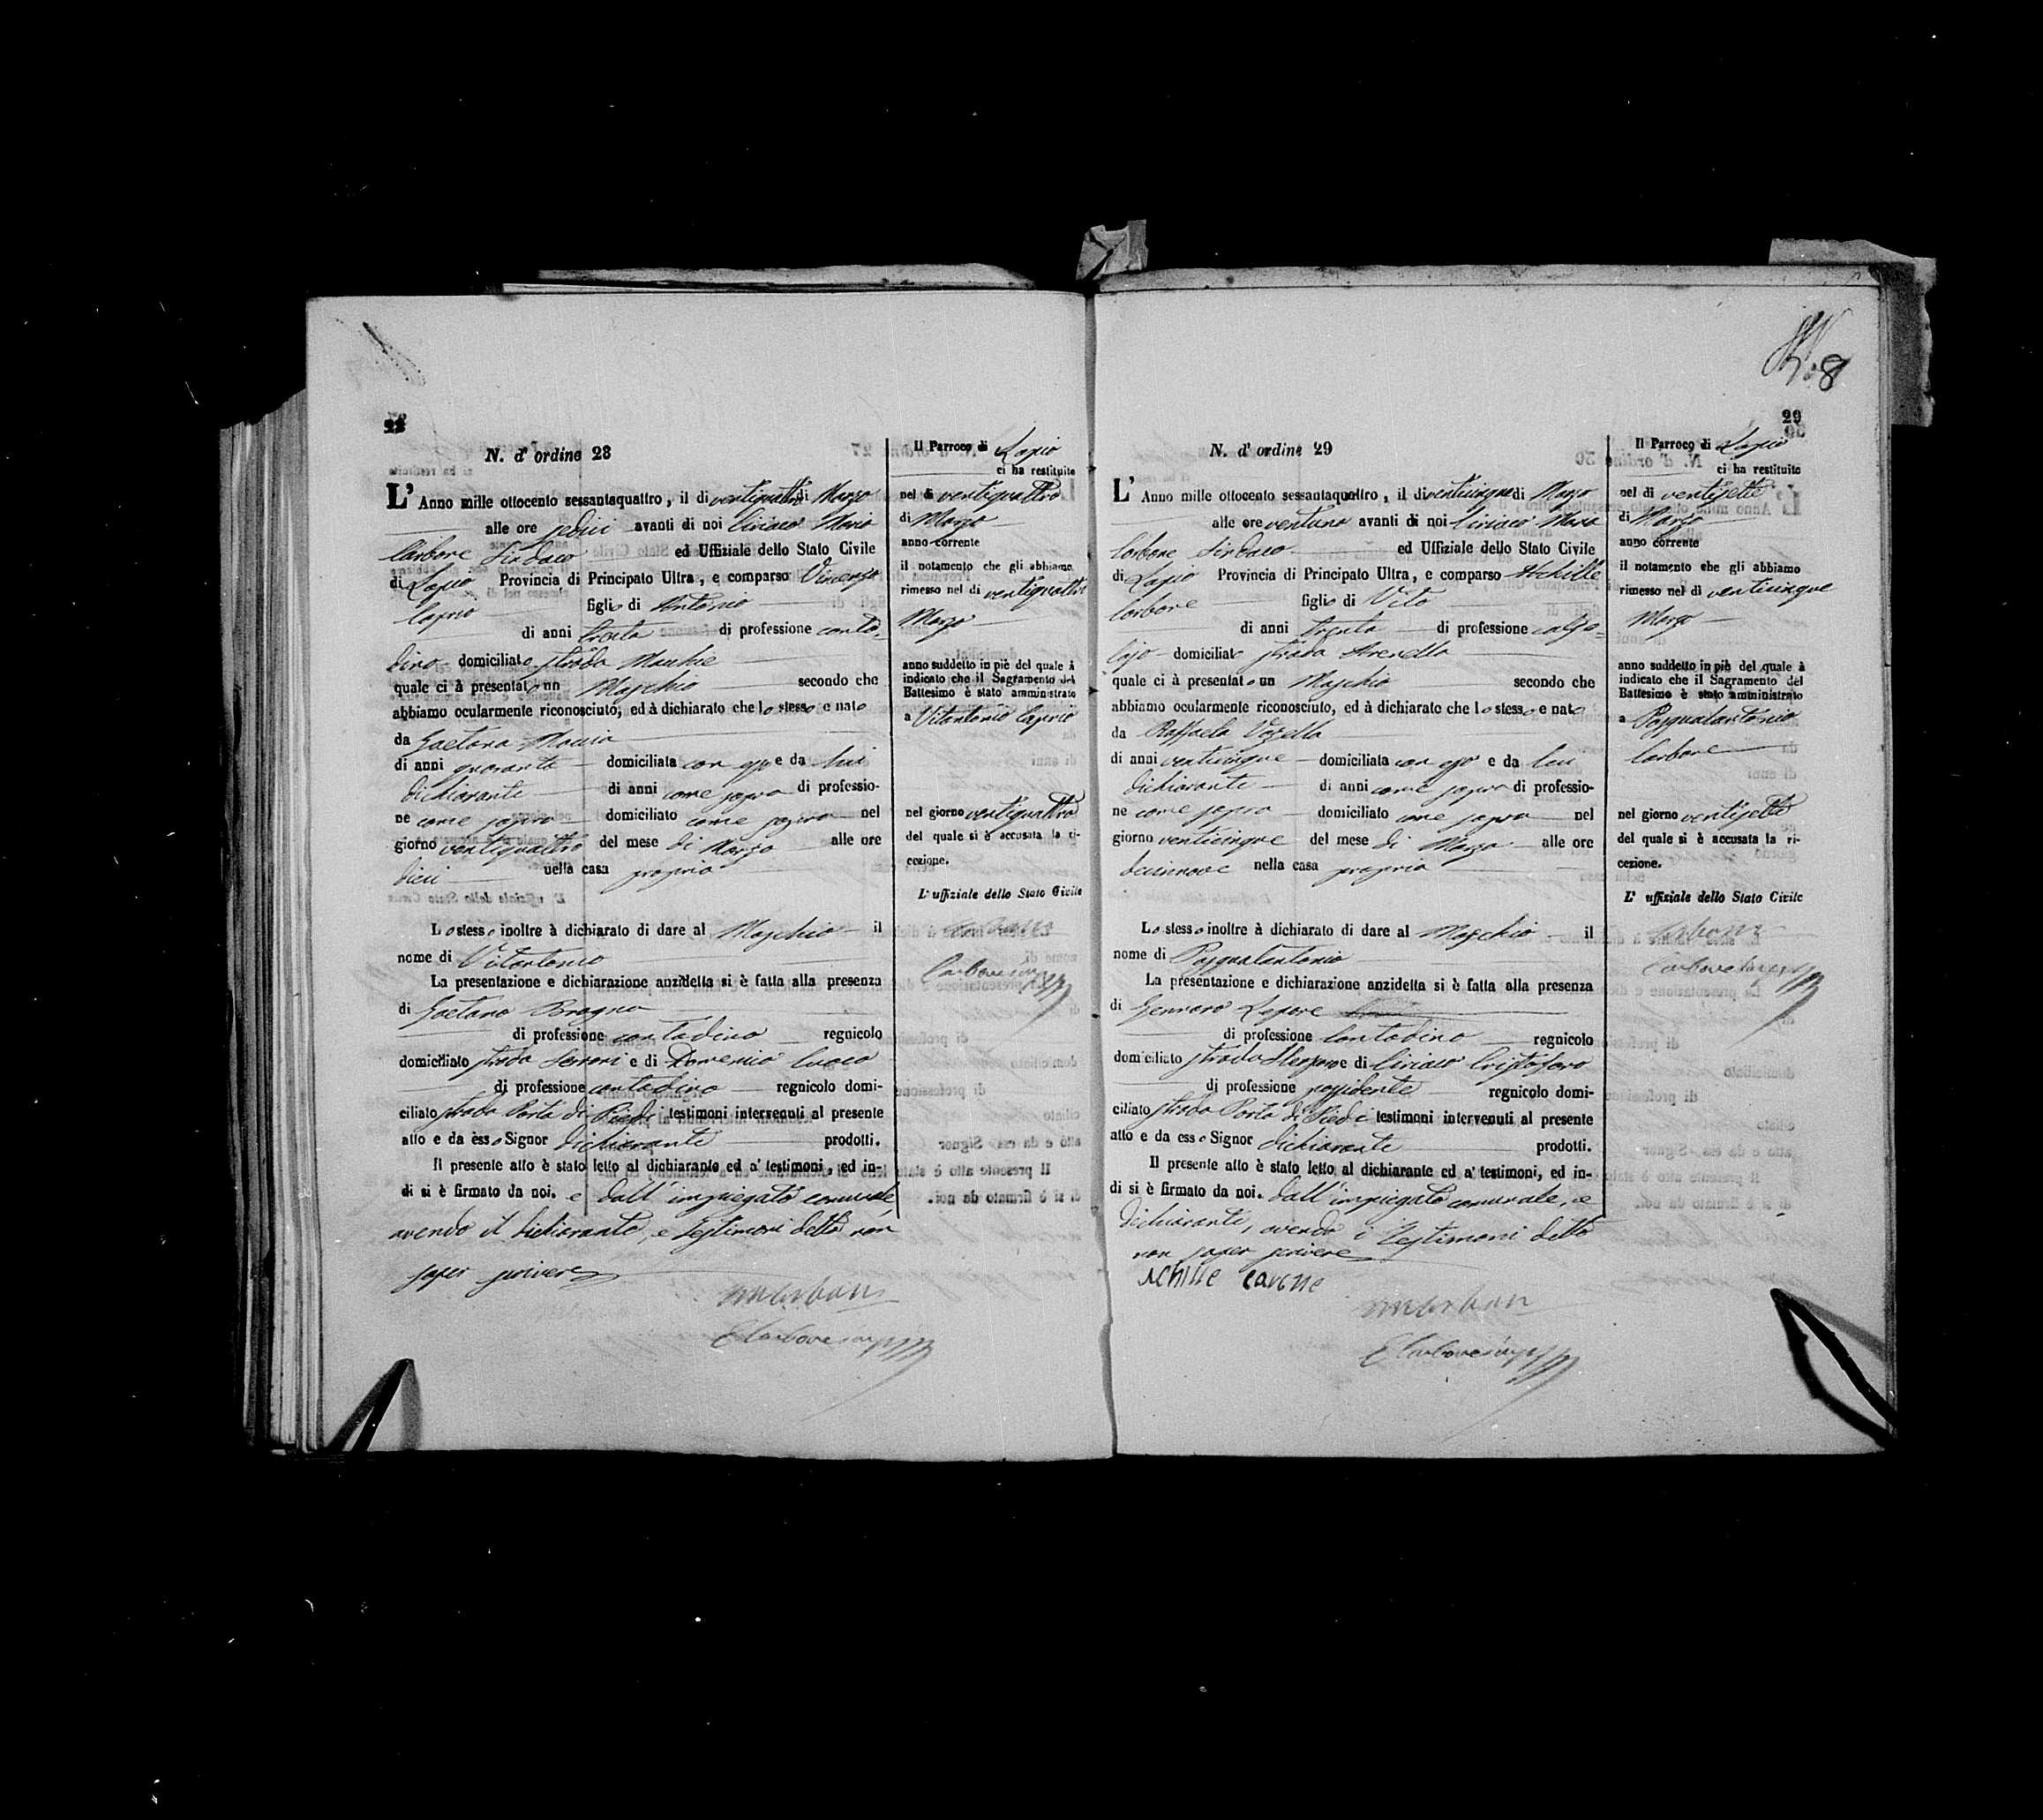 28
N. d' ordine 28
L' Anno mille ottocento sessantaquattro, il di ventiquattro di Marzo
alle ore sedici avanti di noi Ciriaco Maria
Carbone Sindaco ed Uffiziale dello Stato Civile
di Lapio Provincia di Principato Ultra, e comparso Vincenzo
Caprio figlio di Antonio
di anni trenta di professione conta-
dino domiciliato strada
quale ci à presentato un Maschio secondo che
abbiamo ocularmente riconosciuto, ed à dichiarato che lo stesso e nato
da Gaetana
di anni quaranta domiciliata con esso e da lui
dichiarante di anni come sopra di professio-
ne come sopra domiciliato come sopra nel
giorno ventiquattro del mese di Marzo alle ore
dieci nella casa propria
Lo stesso inoltre à dichiarato di dare al Maschio il
nome di Vitantonio
La presentazione e dichiarazione anzidetta si è fatta alla presenza
di Gaetano
di professione contadino regnicolo
domiciliato strada e di Domenico
di professione contadino regnicolo domi-
ciliato strada Porta di Piedi testimoni intervenuti al presente
atto e da esso Signor dichiarante prodotti.
Il presente atto è stato letto al dichiarante ed a' testimoni, ed in-
di si è firmato da noi. e dall'impiegato comunale,
avendo il dichiarante, e testimoni detto non
saper scrivere
Il Parroco di Lapio
ci ha restituito
nel di ventiquattro
di Marzo
anno corrente
il notamento che gli abbiamo
rimesso nel di ventiquattro
Marzo
anno suddetto in piè del quale à
indicato che il Sagramento del
Battesimo è stato amministrato
a Vitantonio Caprio
nel giorno ventiquattro
del quale si è accusata la ri-
cezione.
L' uffiziale dello Stato Civile
8
29
N. d' ordine 29
L' Anno mille ottocento sessantaquattro, il di venticinque di Marzo
alle ore ventuna avanti di noi Ciriaco Maria
Carbone Sindaco ed Uffiziale dello Stato Civile
di Lapio Provincia di Principato Ultra, e comparso Achille
Carbone figlio di Vito
di anni trenta di professione calzo-
lajo domiciliato strada
quale ci à presentato un Maschio secondo che
abbiamo ocularmente riconosciuto, ed à dichiarato che lo stesso e nato
da Raffaela Vozella
di anni venticinque domiciliata con esso e da lui
dichiarante di anni come sopra di professio-
ne come sopra domiciliato come sopra nel
giorno venticinque del mese di Marzo alle ore
diecinnove nella casa propria
Lo stesso inoltre à dichiarato di dare al Maschio il
nome di Pasqualantonio
La presentazione e dichiarazione anzidetta si è fatta alla presenza
di Gennaro Lepore
di professione Contadino regnicolo
domiciliato strada e di Ciriaco Cristofaro
di professione possidente regnicolo domi-
ciliato strada Porta di Piedi testimoni intervenuti al presente
atto e da esso Signor dichiarante prodotti.
Il presente atto è stato letto al dichiarante ed a' testimoni, ed in-
di si è firmato da noi. dall'impiegato comunale, e
dichiarante, avendo i testimoni detto
non saper scrivere
Achille Carbone
Il Parroco di Lapio
ci ha restituito
nel di ventisette
di Marzo
anno corrente
il notamento che gli abbiamo
rimesso nel di venticinque
Marzo
anno suddetto in piè del quale à
indicato che il Sagramento del
Battesimo è stato amministrato
a Pasqualantonio
Carbone
nel giorno ventisette
del quale si è accusata la ri-
cezione.
L' uffiziale dello Stato Civile